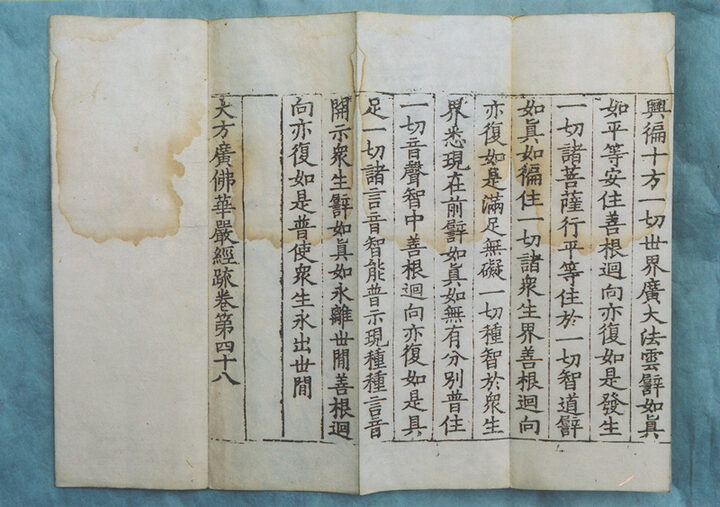 興徧十方一切世界廣大法雲譬如真
如平等安住善根迴向亦復如是發生
一切諸菩薩行平等住於一切智道譬
如眞如徧住一切諸衆生界善根迴向
亦復如是滿足無礙一切種智於衆生
界悉現在前譬如眞如無有分別普住
一切音聲智中善根迴向亦復如是具
足一切諸言音智能普示現種種言音
開示衆生譬如眞如永離世間善根迴
向亦復如是普使衆生永出世間
大方廣佛華嚴經疏卷第四十八